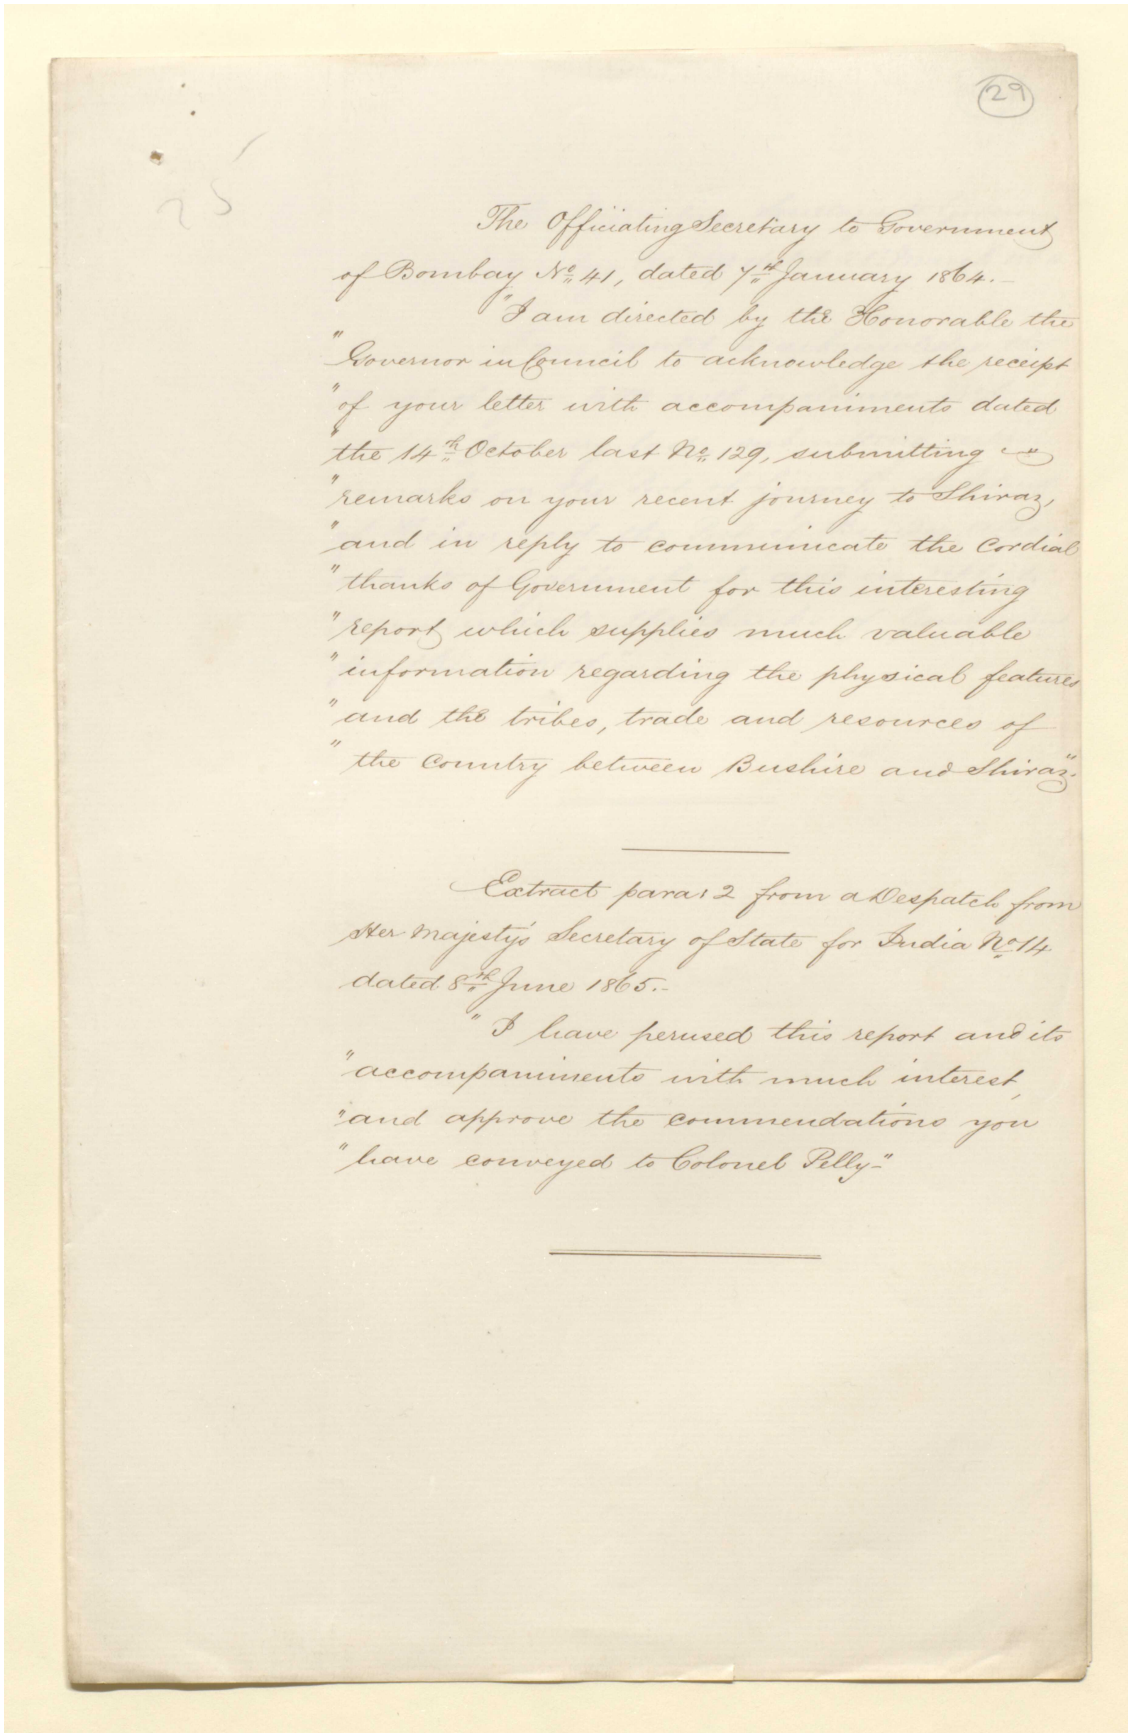 29
25
The Officiating Secretary to Government
of Bombay No. 41, dated 7th January 1864.
"I am directed by the Honorable the
"Governor in Council to acknowledge the receipt
"of your letter with accompaniments dated
"the 14th October last No. 129, submitting
"remarks on your recent journey to Shiraz,
"and in reply to communicate the cordial
"thanks of Government for this interesting
"report which supplies much valuable
"information regarding the physical features
"and the tribes, trade and resources of
"the Country between Bushire and Shiraz".
Extract para: 2 from a Despatch from
Her Majesty's Secretary of State for India No. 14
dated 8th June 1865.-
"I have perused this report and its
"accompaniments with much interest,
"and approve the commendations you
"have conveyed to Colonel Pelly-"